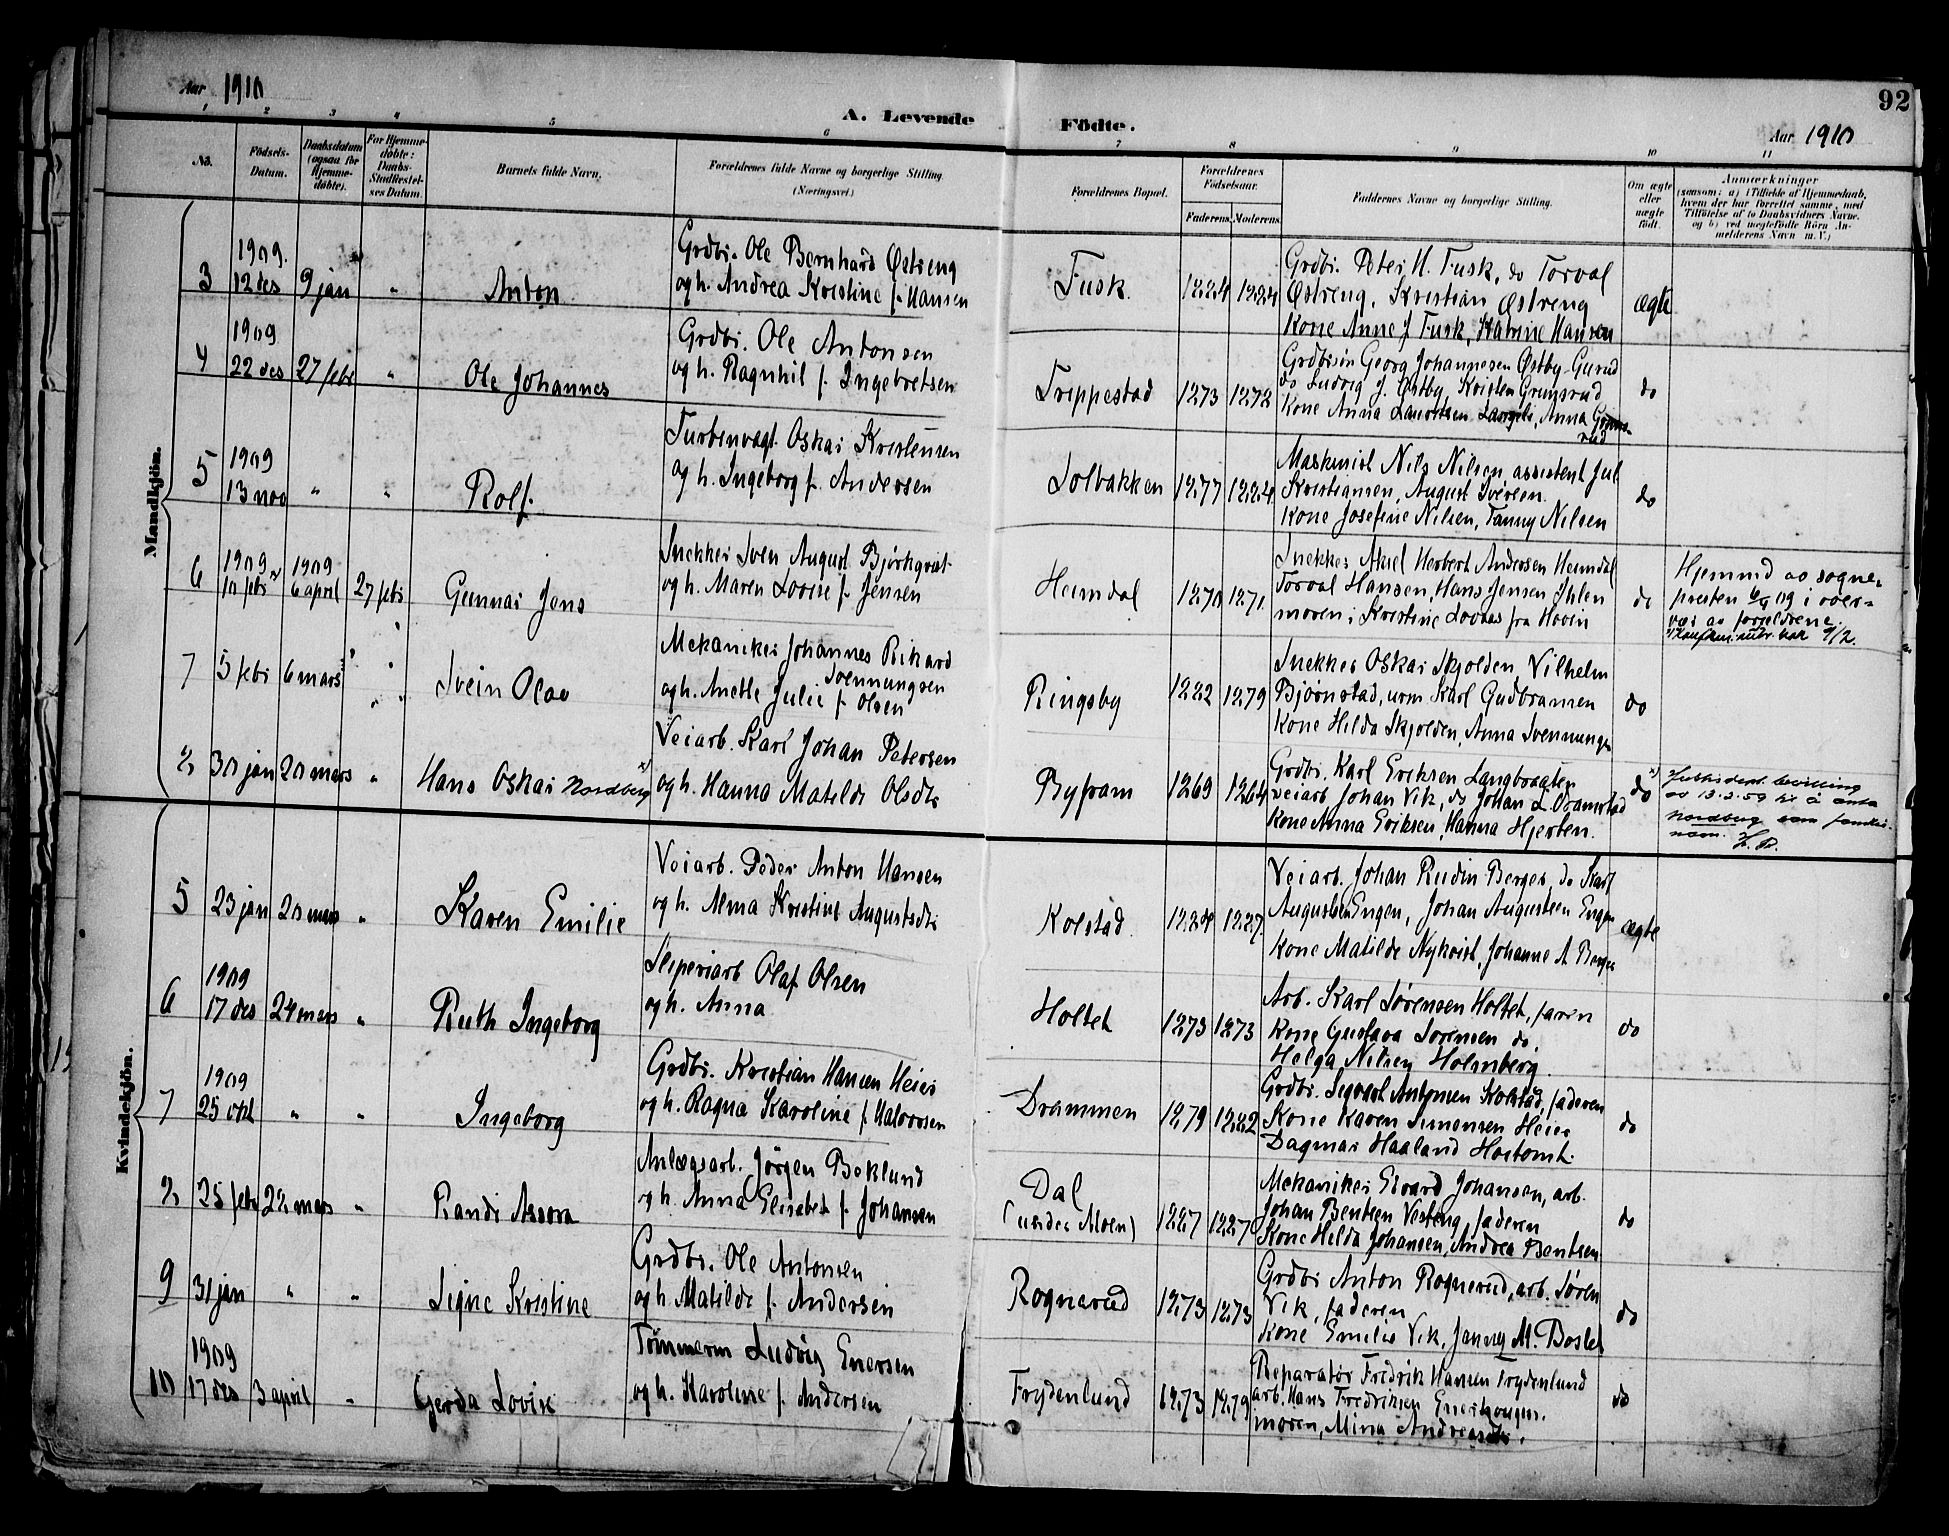 Aar 1910
A. Levende Födte.
92
Aar 1910
1 2 3 4 5 6 7 8 9 10 11
No.
Födsels-Datum.
Daabsdatum (ogsaa for Hjemme-døbte).
For Hjemme-døbte: Daabs-Stadfæstel-ses Datum.
Barnets fulde Navn.
Forældrenes fulde Navne og borgerlige Stilling (Næringsvei)
Forældrenes Bopæl.
Forældrenes Fødselsaar.
Faderens. Moderens.
Faddernes Navne og borgerlige Stilling.
Om ægte eller uægte født.
Anmærkninger
(saasom: a) i Tilfælde af Hjemmedaab,
hvem der har forrettet samme, med
Tilføielse af to Daabsvidners Navne.
og b) ved uegtefødte Börn An-
melderens Navn m.V.)
Mandkjön.
3
1909.
12 des
9 jan
"
Anton
Grdbr. Ole Bernhard Østreng
og h. Andrea Kristine f. Hansen
Fusk.
1884
1884
Grdbr. Peter H. Fusk, do Torval
Østreng, Kristian Østreng
Kone Anne J Fusk, Katrine Hansen
ægte
4
1909
22 des
27 febr
"
Ole Johannes
Grdbr. Ole Antonsen
og h. Ragnhil f. Ingebretsen
Treppestad
1873
1872
Grdbrsøn Georg Johannesen Østby-Gurud
do Ludvig J. Østby, Kristen Grimsrud
Kone Anna Lauritsen Langli, Anna Grims-
rud
do
5
1909
13 nov
"
"
Rolf.
Turbinvagt. Oskar Kristensen
og h. Ingeborg f. Andersen
Solbakken
1877
1884
Maskinist Nils Nilsen, assistent Jul.
Kristiansen, August Iversen.
Kone Josefine Nilsen, Fanny Nilsen
do
6
1909
10 febr
1909
6 april
27 febr
Gunnar Jens
Snekker Sven August Bjørkqvist
og h. Maren Lovise f. Jensen
Heimdal
1870
1871.
Snekker Aksel Herbert Andersen Heimdal
Torval Hansen, Hans Jensen Ihlen
moren, Kristine Lovaas fra Hovin
do
Hjemmed av sogne-
presten 6/4 09 i over-
vær av forældrene.
7
5 febr
6 mars
"
Svein Olav
Mekaniker Johannes Rikard
Svennungsen
og h. Anette Julie f. Olsen
Ringsby
1882
1879
Snekker Oskar Skjolden, Vilhelm
Bjørnstad, urm Karl Gudbransen
Kone Hilda Skjolden, Anna Svennungsen
do
8
30 jan
20 mars
"
Hans Oskar Nordberg x)
Veiarb. Karl Johan Petersen
og h. Hanna Matilde Olsdtr
Byfram
1869
1864
Grdbr. Karl Eriksen Langbraaten
veiarb Johan Vik, do Johan L. Oramstad
Kone Anna Eriksen, Hanna Hjerten.
do
x) Justisdept. bevilling
av 13.2.59 til å anta
Nordberg som familie-
navn.
Kvindekjön.
5
23 jan
20 mars
"
Karen Emilie
Veiarb. Peder Anton Hansen
og h. Alma Kristine Augustsdtr
Kolstad
1884
1887
Veiarb. Johan Rudin Berger, do Karl
Augustsen Engen, Johan Augustsen Engen
Kone Matilde Nykvist, Johanne A Berger
ægte
6
1909
17 des
24 mars
"
Ruth Ingeborg
Sliperiarb Olaf Olsen
og h. Anna
Holtet
1873
1873
Arb. Karl Sørensen Holtet, faren
Kone Gustava Sørensen do,
Helga Nilsen Holmberg.
do
7
1909
25 okt
"
"
Ingeborg
Grdbr. Kristian Hansen Heier
og h. Ragna Karoline f. Halvorsen
Drammen
1879
1882
Grdbr. Sigvart Antonsen Kolstad, faderen
Kone Karen Simensen Heier
Dagmar Haaland Hostomt.
do
8
25 febr
22 mars
"
Randi Assora
Anlægsarb. Jørgen Beklund
og h. Anna Elisabet f. Johansen
Dal
(under Moen)
1887
1887
Mekaniker Edvard Johansen, arb.
Johan Bentsen Vesteng, faderen
Kone Hilda Johansen, Andrea Bentsen
do
9
31 jan
"
"
Signe Kristine
Grdbr. Ole Antonsen
og h Matilde f. Andersen
Rognerud
1873
1873
Grdbr Anton Rognerud, arb. Søren
Vik, faderen
Kone Emilie Vik, Janny M. Doslet
do
10
1909
17 des
3 april
"
Gerda Lovise
Tømmerm Ludvig Enersen
og h. Karoline f. Andersen
Frydenlund
1873
1879
Reparatør Fredrik Hansen Frydenlund
arb. Hans Fredriksen Enerhaugen.
moren, Mina Andreasdtr.
do